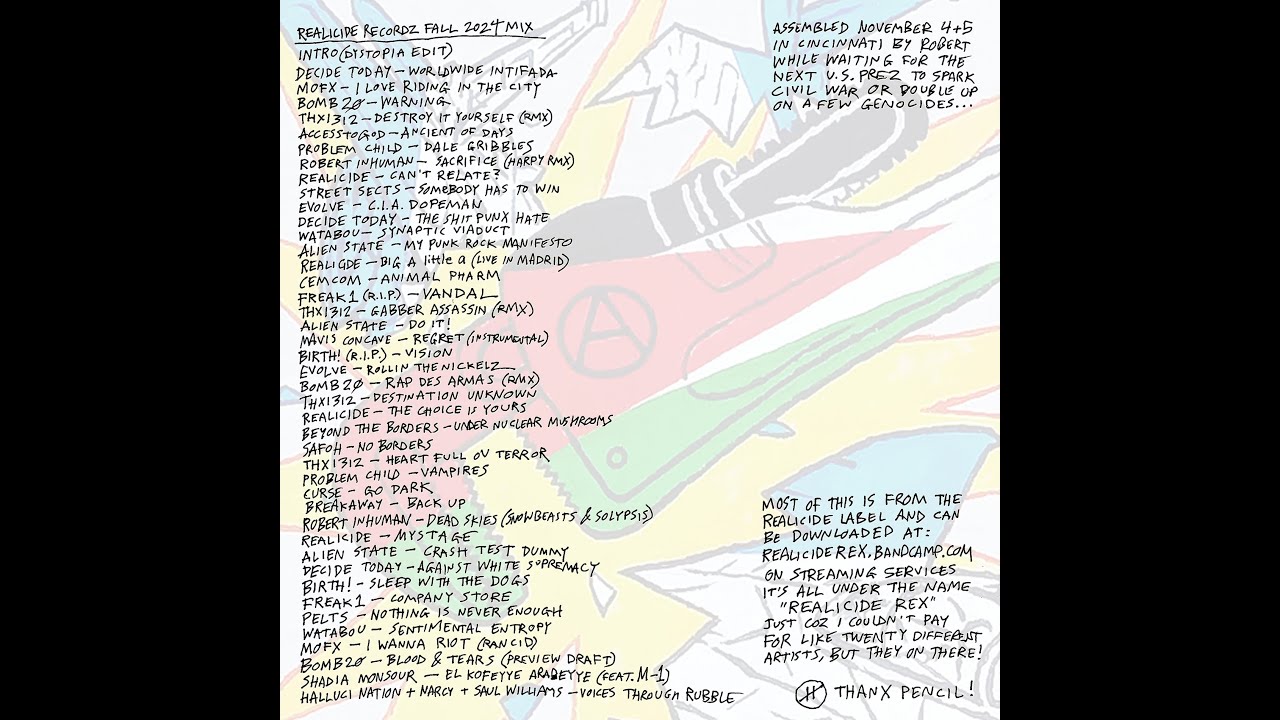 REALICIDE RECORDZ FALL 2024 MIX
INTRO (DYSTOPIA EDIT)
DECIDE TODAY – WORLDWIDE INTIFADA
MOFX – I LOVE RIDING IN THE CITY
BOMB 20 – WARNING
THX1312 – DESTROY IT YOURSELF (RMX)
ACCESSTOGOD – ANCIENT OF DAYS
PROBLEM CHILD – DALE GRIBBLES
ROBERT INHUMAN – SACRIFICE (HARPY RMX)
REALICIDE – CAN'T RELATE?
STREET SECTS – SOMEBODY HAS TO WIN
EVOLVE – C.I.A. DOPEMAN
DECIDE TODAY – THE SHIT PUNX HATE
WATABOU – SYNAPTIC VIADUCT
ALIEN STATE – MY PUNK ROCK MANIFESTO
REALICIDE – BIG A little a (LIVE IN MADRID)
CEMCOM – ANIMAL PHARM
FREAK1 (R.I.P.) – VANDAL
THX1312 – GABBER ASSASSIN (RMX)
ALIEN STATE – DO IT!
MAVIS CONCAVE – REGRET (INSTRUMENTAL)
BIRTH! (R.I.P.) – VISION
EVOLVE – ROLLIN THE NICKELZ
BOMB 20 – RAP DES ARMAS (RMX)
THX1312 – DESTINATION UNKNOWN
REALICIDE – THE CHOICE IS YOURS
BEYOND THE BORDERS – UNDER NUCLEAR MUSHROOMS
SAFOH – NO BORDERS
THX1312 – HEART FULL OV TERROR
PROBLEM CHILD – VAMPIRES
CURSE – GO DARK
BREAKAWAY – BACK UP
ROBERT INHUMAN – DEAD SKIES (SNOWBEASTS & SOLYPSIS)
REALICIDE – MY STAGE
ALIEN STATE – CRASH TEST DUMMY
DECIDE TODAY – AGAINST WHITE SUPREMACY
BIRTH! – SLEEP WITH THE DOGS
FREAK1 – COMPANY STORE
PELTS – NOTHING IS NEVER ENOUGH
WATABOU – SENTIMENTAL ENTROPY
MOFX – I WANNA RIOT (RANCID)
BOMB 20 – BLOOD & TEARS (PREVIEW DRAFT)
SHADIA MONSOUR – EL KOFEYYE ARABEYYE (FEAT. M-1)
HALLUCI NATION + NARCY + SAUL WILLIAMS – VOICES THROUGH RUBBLE
ASSEMBLED NOVEMBER 4+5
IN CINCINNATI BY ROBERT
WHILE WAITING FOR THE
NEXT U.S. PREZ TO SPARK
CIVIL WAR OR DOUBLE UP
ON A FEW GENOCIDES...
A
MOST OF THIS IS FROM THE
REALICIDE LABEL AND CAN
BE DOWNLOADED AT:
REALICIDEREX.BANDCAMP.COM
ON STREAMING SERVICES
IT'S ALL UNDER THE NAME
"REALICIDE REX"
JUST COZ I COULDN'T PAY
FOR LIKE TWENTY DIFFERENT
ARTISTS, BUT THEY ON THERE!
THANX PENCIL!